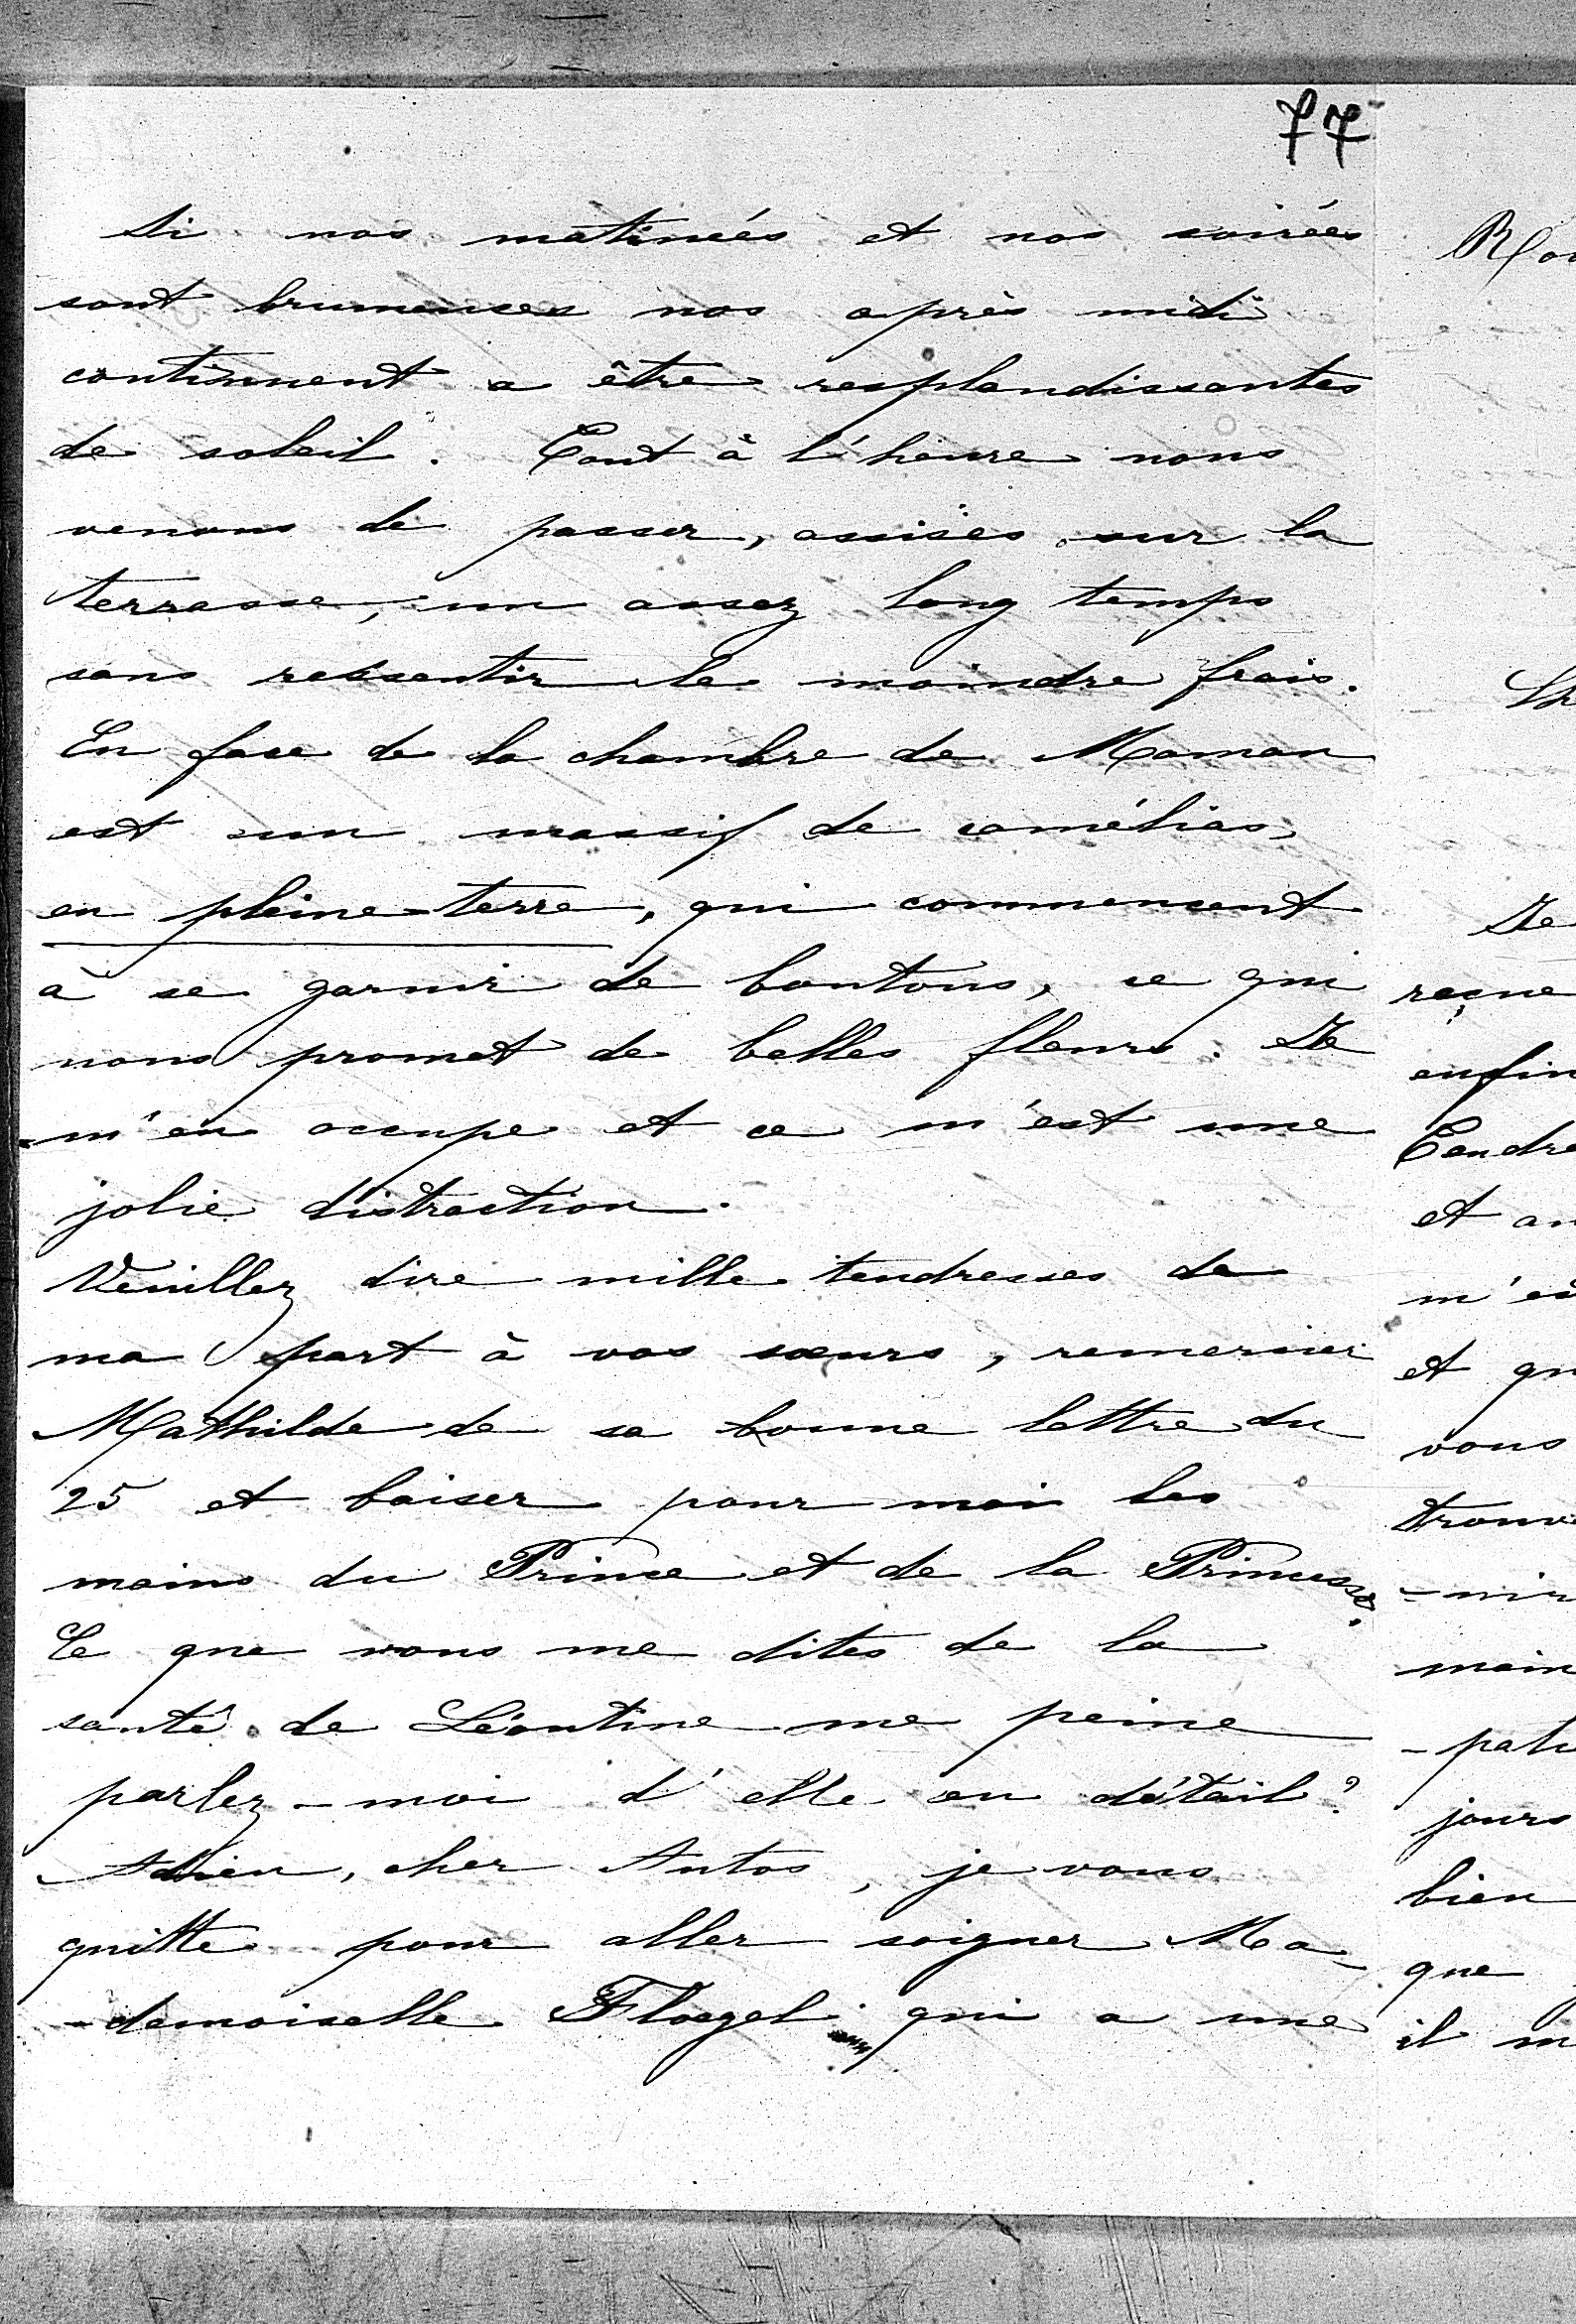 77
Si nos matineés et nos soirées
sont brumeuses nos après midi
continuent a être resplendissantes
de soleil. Tout à l'heure nous
venons de passer, assises sur la
terrasse, un assez long temps
sans ressentir le moindre frais.
En face de la chambre de Maman
est un massif de camélias,
en pleine-terre, qui commencent
à se garnir de boutons, ce qui
nous promet de belles fleurs. Je
m'en occupe et ce m'est une
jolie distraction.
Veuillez dire mille tendresses de
ma part à vos sœurs, remercier
Mathilde de sa bonne lettre du
25 et baiser pour moi les
mains du Prince et de la Princesse.
Ce que vous me dites de la
santé de Léontine me peine
parlez-moi d'elle en détail?
Adieu, cher Antos, je vous
quitte pour aller soigner Ma-
-demoiselle Floegel qui a une
Je
reçue
enfin
Tendre
et
et
vous
-nir
main
jours
bien
que
il